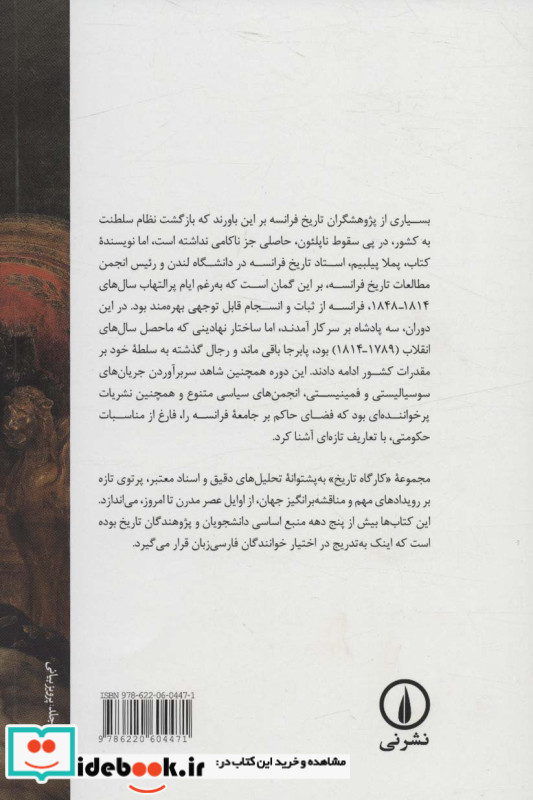 بسیاری از پژوهشگران تاریخ فرانسه بر این باورند که بازگشت نظام سلطنت
به کشور، در پی سقوط ناپلئون، حاصلی جز ناکامی نداشته است، اما نویسندهٔ
کتاب، پملا پیلبیم، استاد تاریخ فرانسه در دانشگاه لندن و رئیس انجمن
مطالعات تاریخ فرانسه، بر این گمان است که به‌رغم ایام پرالتهاب سال‌های
۱۸۱۴-۱۸۴۸، فرانسه از ثبات و انسجام قابل توجهی بهره‌مند بود. در این
دوران، سه پادشاه بر سر کار آمدند، اما ساختار نهادینی که ماحصل سال‌های
انقلاب (۱۷۸۹-۱۸۱۴) بود، پابرجا باقی ماند و رجال گذشته به سلطهٔ خود بر
مقدرات کشور ادامه دادند. این دوره همچنین شاهد سربرآوردن جریان‌های
سوسیالیستی و فمینیستی، انجمن‌های سیاسی متنوع و همچنین نشریات
پرخواننده‌ای بود که فضای حاکم بر جامعهٔ فرانسه را، فارغ از مناسبات
حکومتی، با تعاریف تازه‌ای آشنا کرد.
مجموعهٔ «کارگاه تاریخ» به‌پشتوانهٔ تحلیل‌های دقیق و اسناد معتبر، پرتوی تازه
بر رویدادهای مهم و مناقشه‌برانگیز جهان، از اوایل عصر مدرن تا امروز، می‌اندازد.
این کتاب‌ها بیش از پنج دهه منبع اساسی دانشجویان و پژوهندگان تاریخ بوده
است که اینک به‌تدریج در اختیار خوانندگان فارسی‌زبان قرار می‌گیرد.
جلد: پرویز بیانی
ISBN 978-622-06-0447-1
9 786220 604471
نشرنی
مشاهده و خرید این کتاب در:
idebook.ir